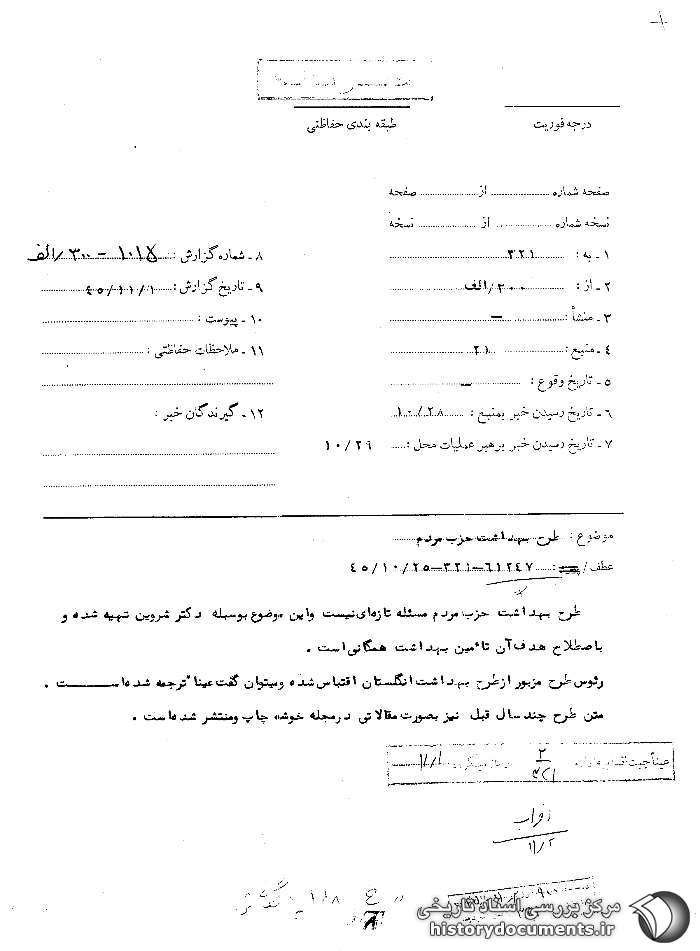 درجه فوریت
طبقه بندی حفاظتی
صفحه شماره ........ از ........ صفحه
نسخه شماره ........ از ........ نسخه
۱ ـ به : ۳۲۱
۲ ـ از : ۲۰۰/الف
۳ ـ منشأ : ـ
۴ ـ منبع : ۲۱
۵ ـ تاریخ وقوع : ـ
۶ ـ تاریخ رسیدن خبر بمنبع : ۱۰/۲۸
۷ ـ تاریخ رسیدن خبر برهبر عملیات محل : ۱۰/۲۹
۸ ـ شماره گزارش : ۱۰۱۵ - ۳۰۰/الف
۹ ـ تاریخ گزارش : ۴۵/۱۱/۱
۱۰ ـ پیوست :
۱۱ ـ ملاحظات حفاظتی :
۱۲ ـ گیرندگان خبر :
موضوع : طرح بهداشت حزب مردم
عطف/ : ۶۱۲۴۷-۳۲۱-۴۵/۱۰/۲۵
طرح بهداشت حزب مردم مسئله تازه‌ای نیست واین موضوع بوسیله دکتر شروین تهیه شده و
باصطلاح هدف آن تأمین بهداشت همگانی است .
رئوس طرح مزبور از طرح بهداشت انگلستان اقتباس شده و میتوان گفت عیناً ترجمه شده است .
متن طرح چند سال قبل نیز بصورت مقالاتی در مجله خوشه چاپ و منتشر شده است .
مرکز بررسی اسناد تاریخی
historydocuments.ir